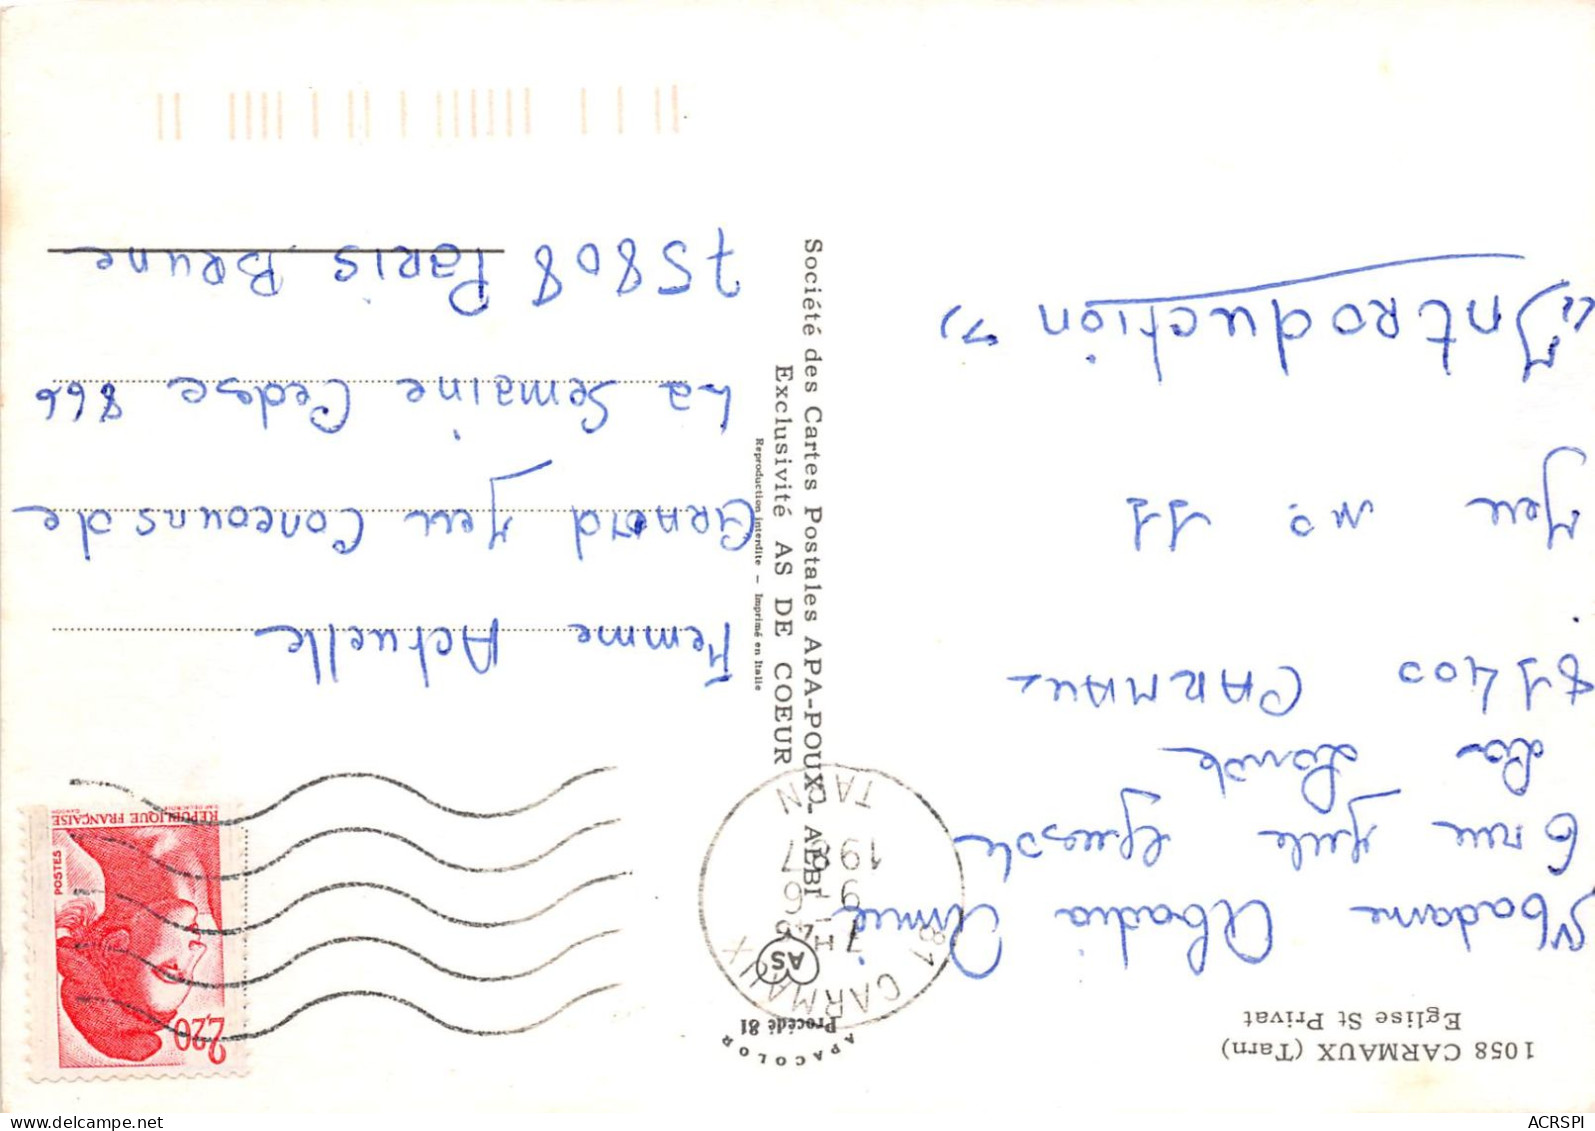 1058 CARMAUX (Tarn)
Eglise St Privat
Madame Abadia Aimée
6 rue Jule Guesde
La Loude
81400 CARMAUX
Jeu no 11
"Introduction"
APACOLOR
Procédé 81
AS
Société des Cartes Postales APA-POUX - ALBI
Exclusivité AS DE COEUR
Reproduction interdite - Imprimé en Italie
81 CARMAUX
7H45
9 - 6
1987
TARN
2,20
POSTES
REPUBLIQUE FRANÇAISE
Femme Actuelle
Grand Jeu Concours de
La Semaine Cedex 866
75808 Paris Brune
ACRSPI